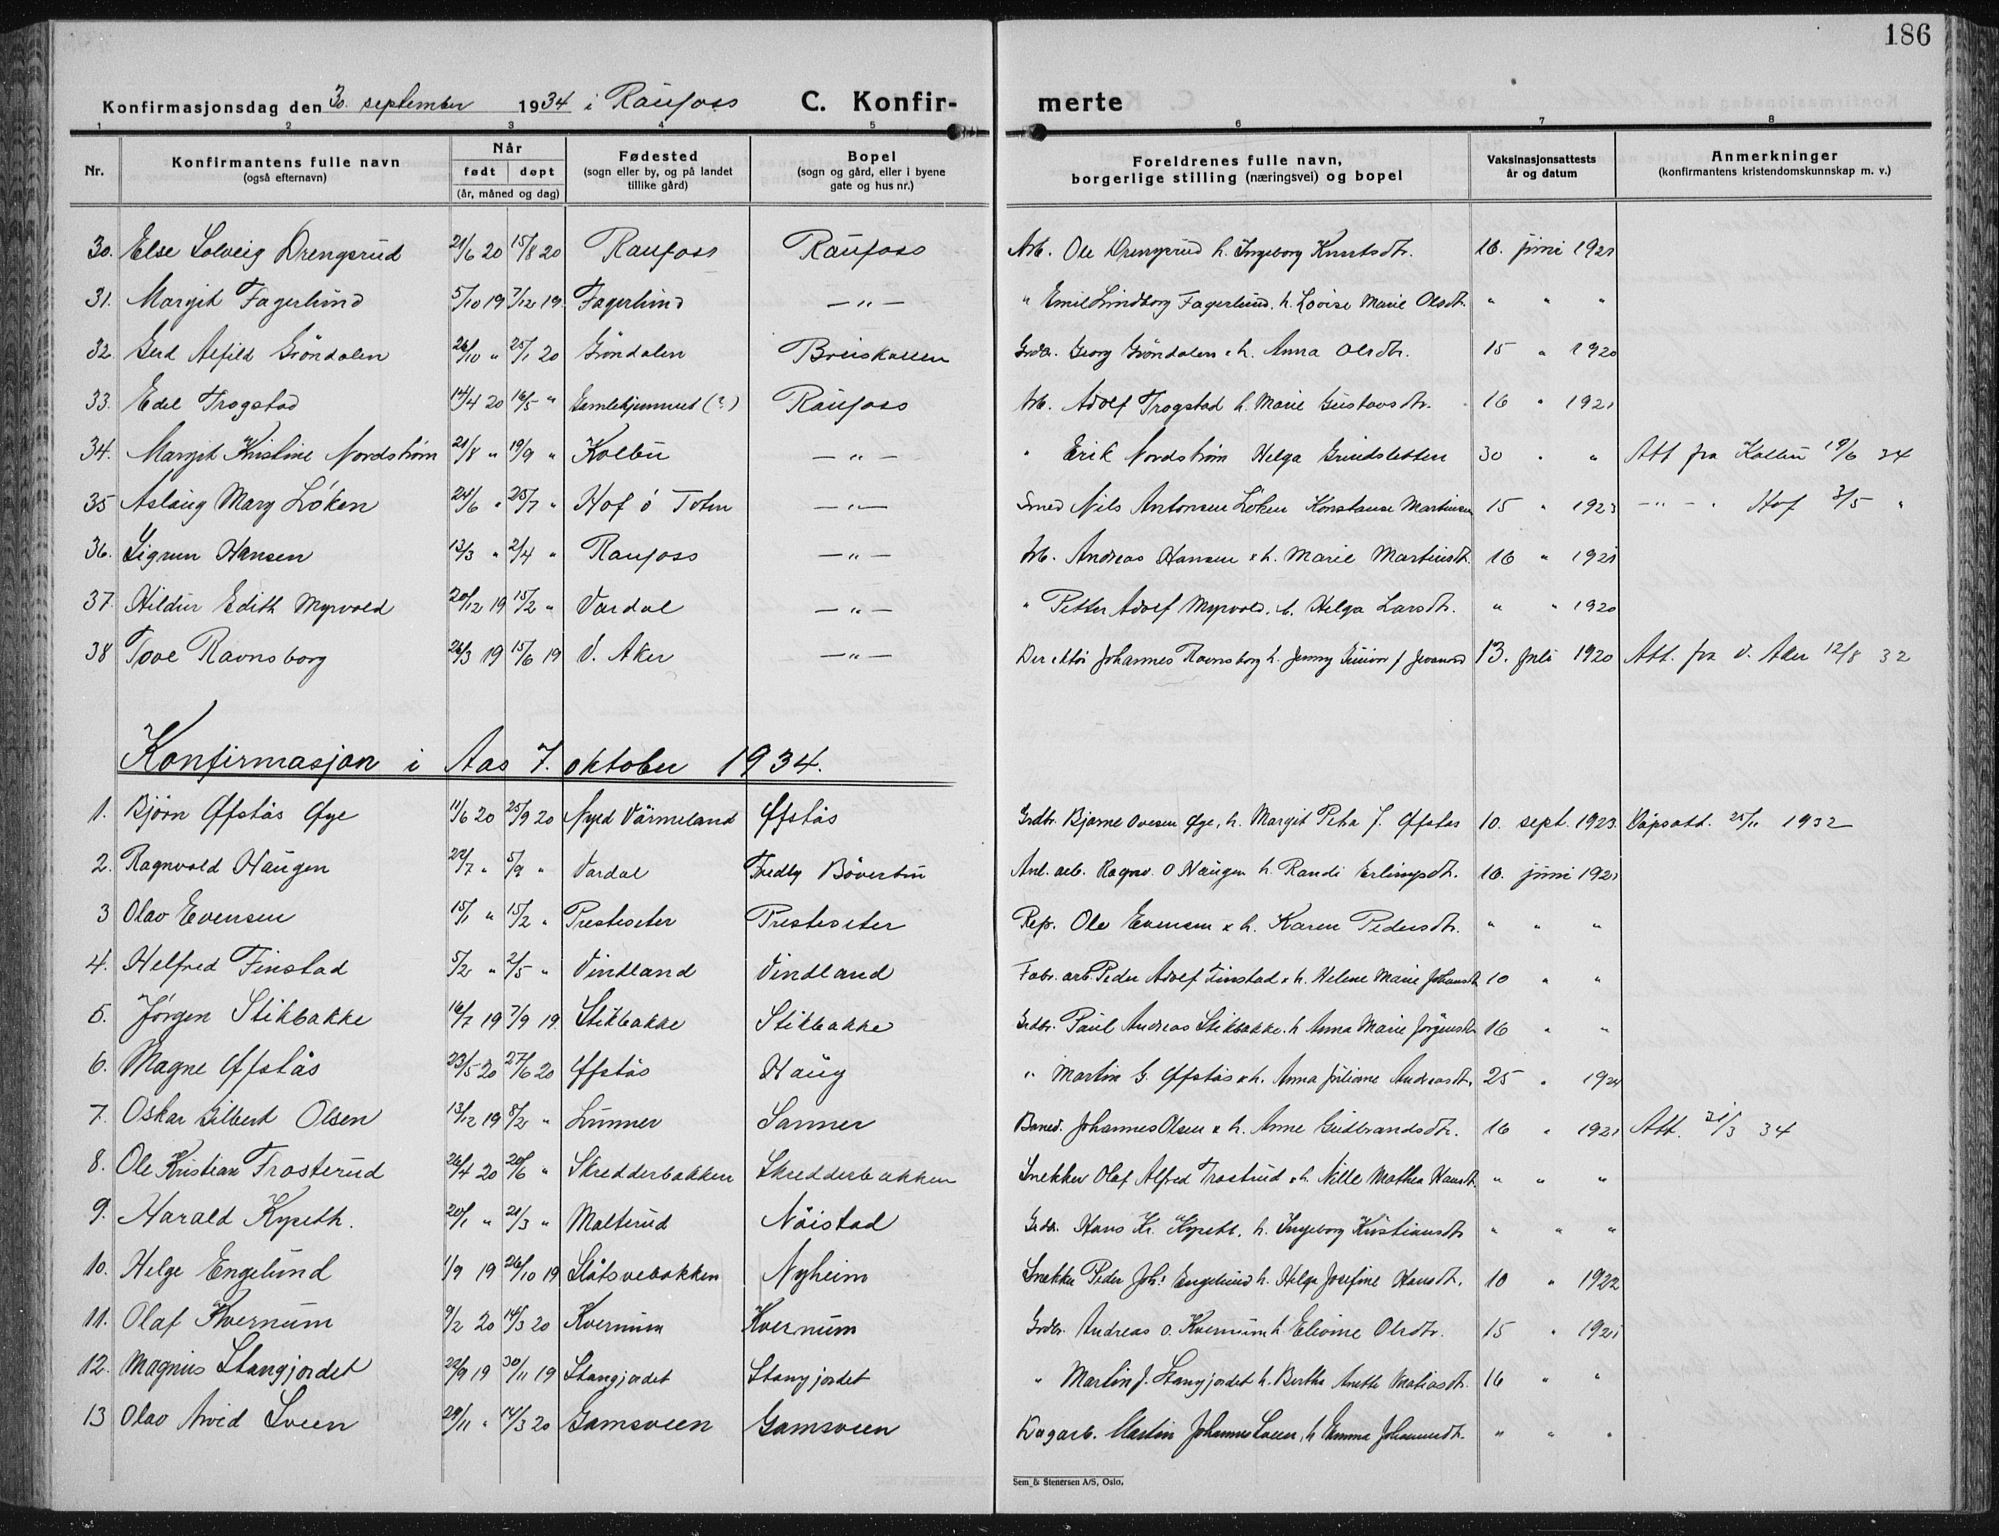 186
Konfirmasjonsdag den 30. september 1934 i Raufoss C. Konfir- merte
1 2 3 4 5 6 7 8
Nr. Konfirmantens fulle navn (også efternavn) Når født døpt (år, måned og dag) Fødested (sogn eller by, og på landet tillike gård) Bopel (sogn og gård, eller i byene gate og hus nr.) Foreldrenes fulle navn, borgerlige stilling (næringsvei) og bopel Vaksinasjonsattests år og datum Anmerkninger (konfirmantens kristendomskunnskap m. v.)
30. Else Solveig Drengsrud 21/6 20 15/8 20 Raufoss Raufoss Arb. Ole Drengsrud h. Ingeborg Knutsdtr. 16. juni 1921
31. Margit Fagerlund 5/10 19 7/12 19. Fagerlund —"— " Emil Lindborg Fagerlund. h. Lovise Marie Olsdtr. " " "
32. Gerd Alfild Gröndalen 26/10 " 25/1 20 Gröndalen Breiskallen Grdbr. Georg Gröndalen x h. Anna Olsdtr. 15 " 1920
33. Edel Trogstad 14/4 20 16/5 " (?) Raufoss Arb. Adolf Trogstad h. Marie Gustavsdtr. 16 " 1921
34. Margit Kristine Nordstrøm 21/8 " 19/9 " Kolbu —"— " Erik Nordstrøm Helga 30 " " Att fra Kolbu 19/6 34
35 Aslaug Mary Løken 24/6 " 25/7 " Hof ö Toten —"— Smed Nils Antonsen Løken Konstanse Martinsen 15 " 1923 —"— " Hof 3/5 "
36. Sigrun Hansen 13/3 " 2/4 " Raufoss —"— Arb. Andreas Hansen x h. Marie Martinsdtr. 16 " 1921
37. Hildur Edith Myrvold 20/12 19 15/2 " Vardal —"— " Petter Adolf Myrvold. h. Helga Larsdtr. " " 1920
38 Tove Ravnsborg 26/3 19 15/6 19 V. Aker —"— Johannes Ravnsborg h. Jenny 13. juli 1920 Att. fra V. Aker 12/8 32
Konfirmasjon i Aas 7. oktober 1934.
1. Bjørn Øfstås Øye 11/6 20 25/9 20 Nyed Värmeland Øfstås Grdbr. Bjarne Ovesen Øye, h. Margit Petra J. Øfstås 10. sept. 1923. Dåpsatt. 25/11 1932
2. Ragnvald Haugen 22/7 " 5/9 " Vardal Fredly Böverbru Anl. arb. Ragnv. O Haugen h. Randi Erlingsdtr. 16. juni 1921
3 Olav Evensen 15/1 " 15/2 " Presteseter Presteseter Rep. Ole Evensen x h. Karen Pedersdtr. " " "
4. Helfred Finstad 5/2 " 2/5 " Vindland Vindland Fabr. arb Peder Adolf Finstad x h. Helene Marie Johansdtr 10 " "
5. Jørgen Stikbakke 16/7 19 7/9 19. Stikbakke Stikbakke Grdbr. Paul Andreas Stikbakke. h Anna Marie Jørgensdtr 16 " "
6. Magne Øfstås 23/5 20 27/6 20 Øfstås Haug " Martin G. Øfstås x h. Anna Juliane Andreasdtr. 25 " 1921
7. Oskar Gilbert Olsen 13/12 19 8/2 " Lunner Sanner Baned. Johannes Olsen x h. Anne Gudbrandsdtr. 16 " 1921 Att. 21/3 34
8. Ole Kristian Trosterud 26/4 20 20/6 " Skredderbakken Skredderbakken Snekker Olaf Alfred Trostrud x h Nille Mathea Hansdtr. " " "
9. Harald Kyseth. 20/1 " 21/3 " Malterud Nöistad Grdbr. Hans Kr. Kyseth. h. Ingeborg Kristiansdtr " " "
10. Helge Engelund 1/9 19 26/10 19 Slåtsvebakken Nyheim Snekker Peder Joh. Engelund h. Helga Josefine Hansdtr. 10 " 1922
11. Olaf Kvernum 9/2 20 14/3 20 Kvernum Kvernum Grdbr. Andreas O. Kvernum h. Olsdtr. 15 " 1921
12. Magnus Stangjordet 22/9 19 30/11 19 Stangjordet Stangjordet " Martin J. Stangjordet h. Berthe Anette Matiasdtr. 16 " "
13 Olav Arvid Sveen 29/11 " 14/3 20 Gamsveen Gamsveen Dagarb. Martin Johannes Sveen, h Emma " " "
Sem & Stenersen A/S, Oslo.